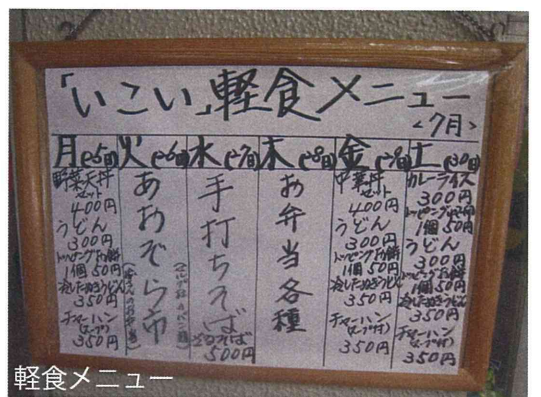 「いこい」軽食メニュー
<7月>
月
野菜天丼
セット
400円
うどん
300円
トッピング
1個50円
冷したぬきうどん
350円
チャーハン
(スープ付)
350円
火
あおぞら市
水
手打ちそば
500円
木
お弁当各種
金
中華丼
セット
400円
うどん
300円
トッピング
1個50円
冷したぬきうどん
350円
チャーハン
(スープ付)
350円
土
カレーライス
300円
トッピング
1個50円
うどん
300円
トッピング
1個50円
冷したぬきうどん
350円
チャーハン
(スープ付)
350円
軽食メニュー